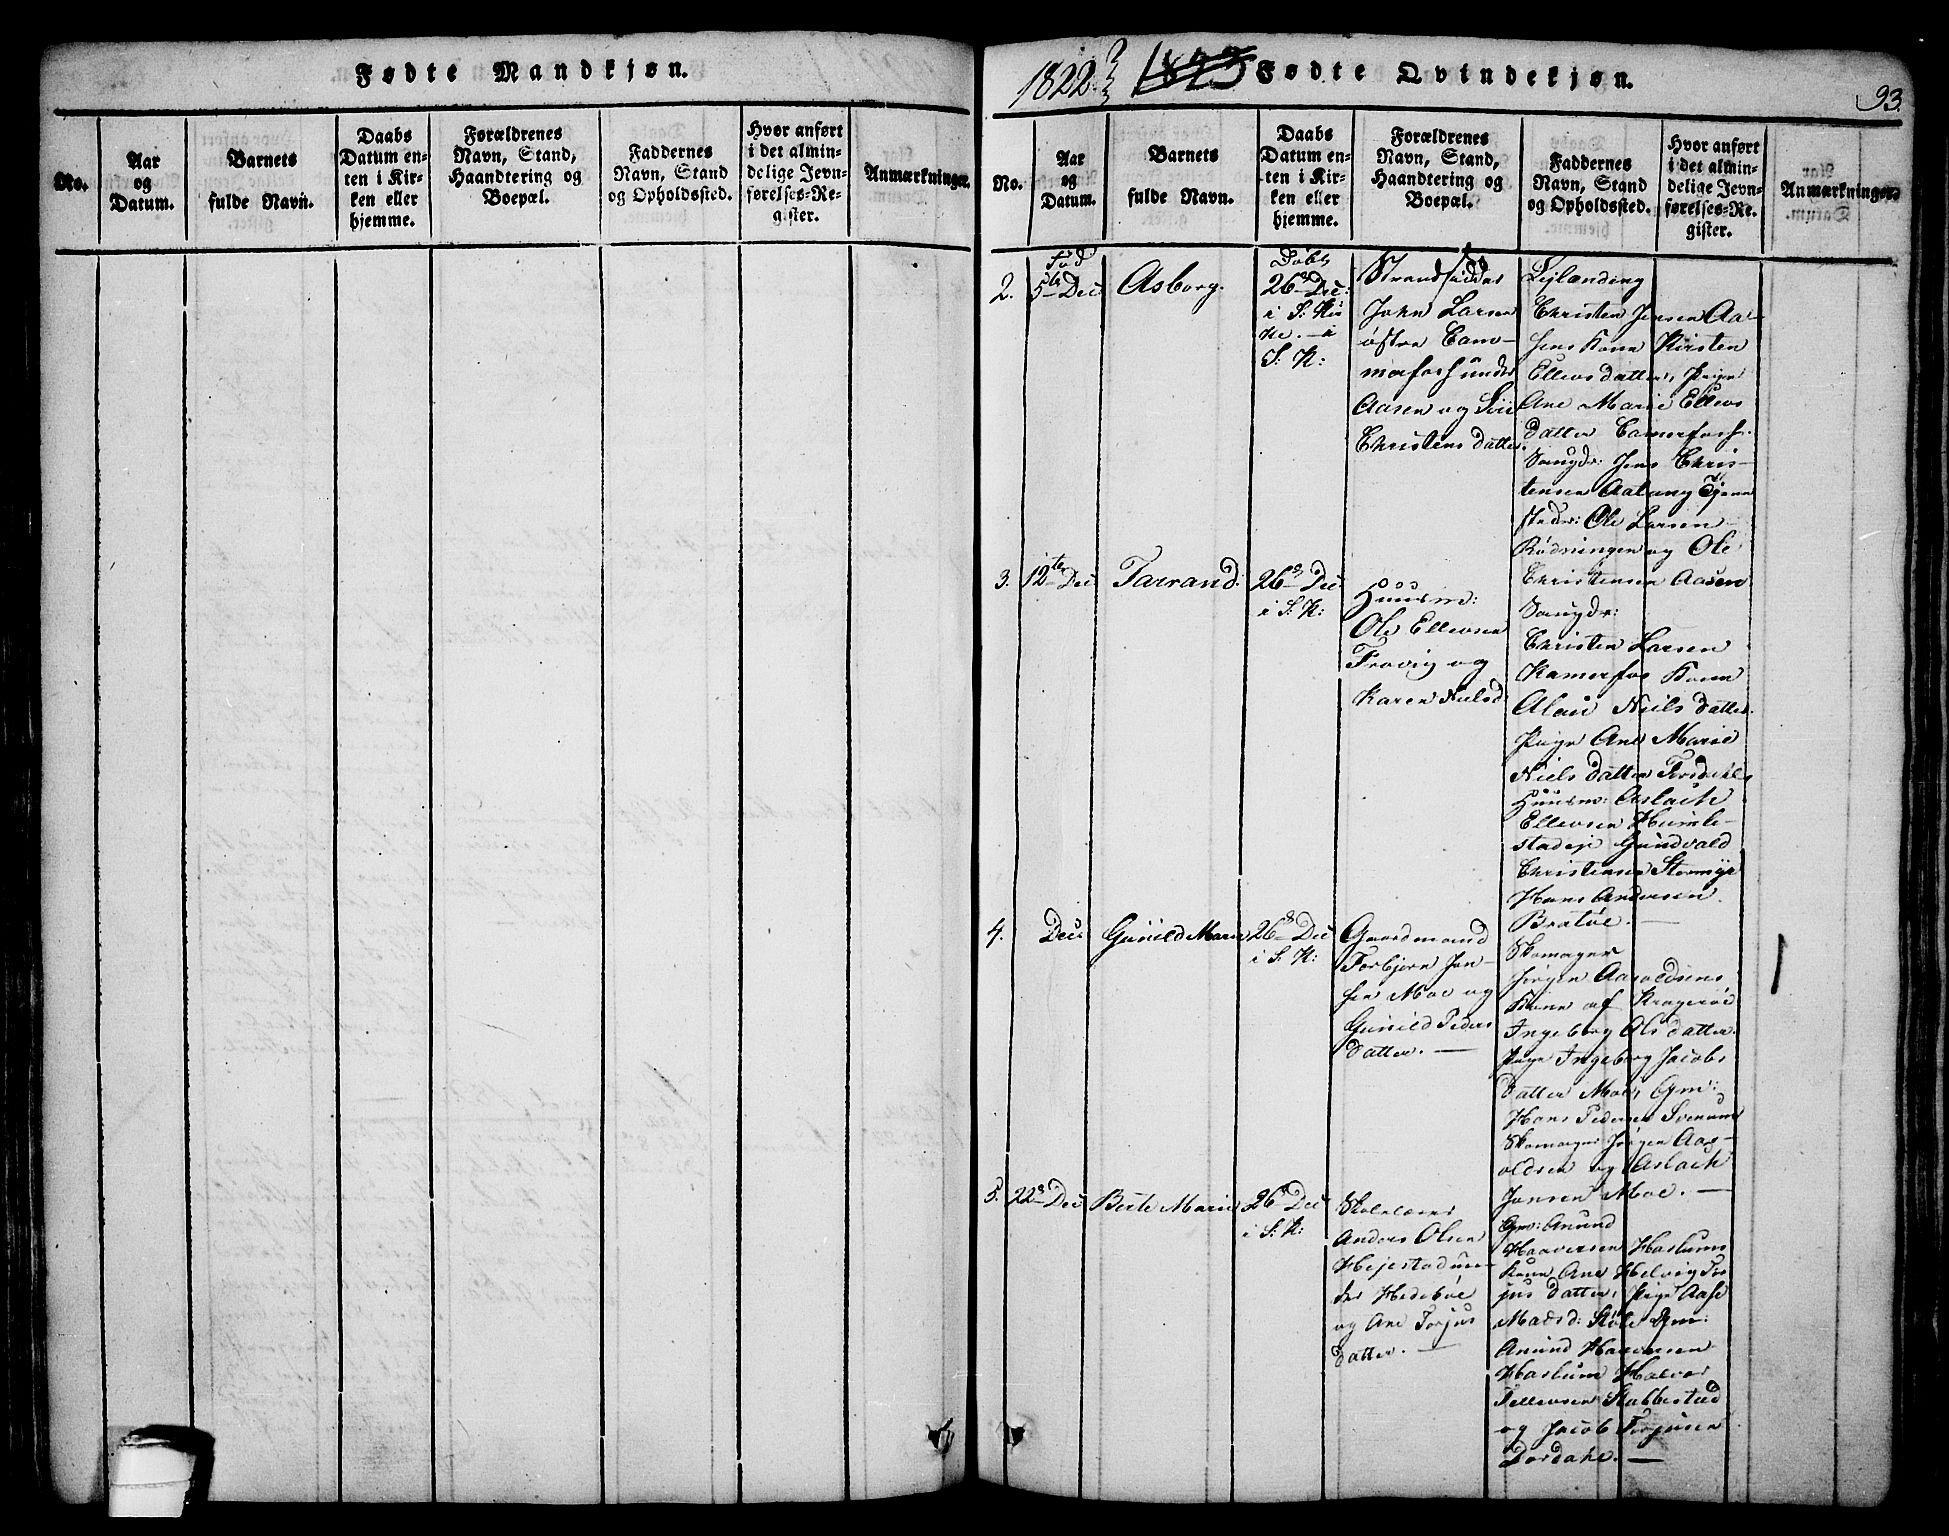 Fødte Mandkjøn.
No.
Aar
og
Datum.
Barnets
fulde Navn.
Daabs
Datum en-
ten i Kir-
ken eller
hjemme.
Forældrenes
Navn, Stand,
Haandtering og
Boepæl.
Faddernes
Navn, Stand
og Opholdssted.
Hvor anført
i det almin-
delige Jevn-
førelses-Re-
gister.
Anmærkninger.
1822 1823 Fødte Qvindekjøn.
93.
No.
Aar
og
Datum.
Barnets
fulde Navn.
Daabs
Datum en-
ten i Kir-
ken eller
hjemme.
Forældrenes
Navn, Stand,
Haandtering og
Boepæl.
Faddernes
Navn, Stand
og Opholdssted.
Hvor anført
i det almin-
delige Jevn-
førelses-Re-
gister.
Anmærkninger.
2.
Fød
5te Dec
Asborg.
Døbt
26de Dec:
i S: Kir
ke. – i
S: K:
Strandsidder
John Larsen
østre Cam-
merfosf under
Aasen og Siri
Christens datter.
Lejlænding
Christen Jensen Aa-
sens Kone Kirsten
Ellevs datter, Pige
Ane Marie Ellevs
datter Camerfosf.
Sougdr: Jens Chris-
tensen
Ole Larsen
Rødningen og Ole
Christensen Aasen
3.
12te Dec
Tarrand.
26de Dec
i S: K:
Huusm:
Ole Ellevsen
Frovig og
Karen Nielsd:
Sougdr:
Christen Larsen
Kamerfos Kone
Niels datter.
Pige Ane Marie
Niels datter
Huusm: Aslach
Ellevsen Humle-
stadeje Gundvald
Christensen Stormyr
Hans Andersen
Bratøe. —
4.
Dec.
Gunild Marie
26de Dec
i S: K:
Gaardmand
Torbjørn Jon-
sen Moe og
Gunild Peders
datter. —
Skomager
Jørgen Aaroldsens
Kone af Kragerøe
Ingeborg Ols datter.
Pige Ingeborg Jacobs
datter Moe, Gm:
Hans Pedersen
Skomager Jørgen Aar-
oldsen og Aslach
Jonsen Moe. —
5.
22de Dec
Berte Marie
26de Dec
i S: K:
Skolelærer
Anders Olsen
Hejestad un-
der Hedebøe
og Ane Torjus
datter. —
Gm: Anund
Haavorsen Haslums
Kone Ane Helvig Tor
jus datter, Pige Aase
Madsd: Støle Gm:
Anund Haavorsen
Haslum Halvor
Tellevsen Stabbestad
og Jacob Torjusen
Dordahl. —